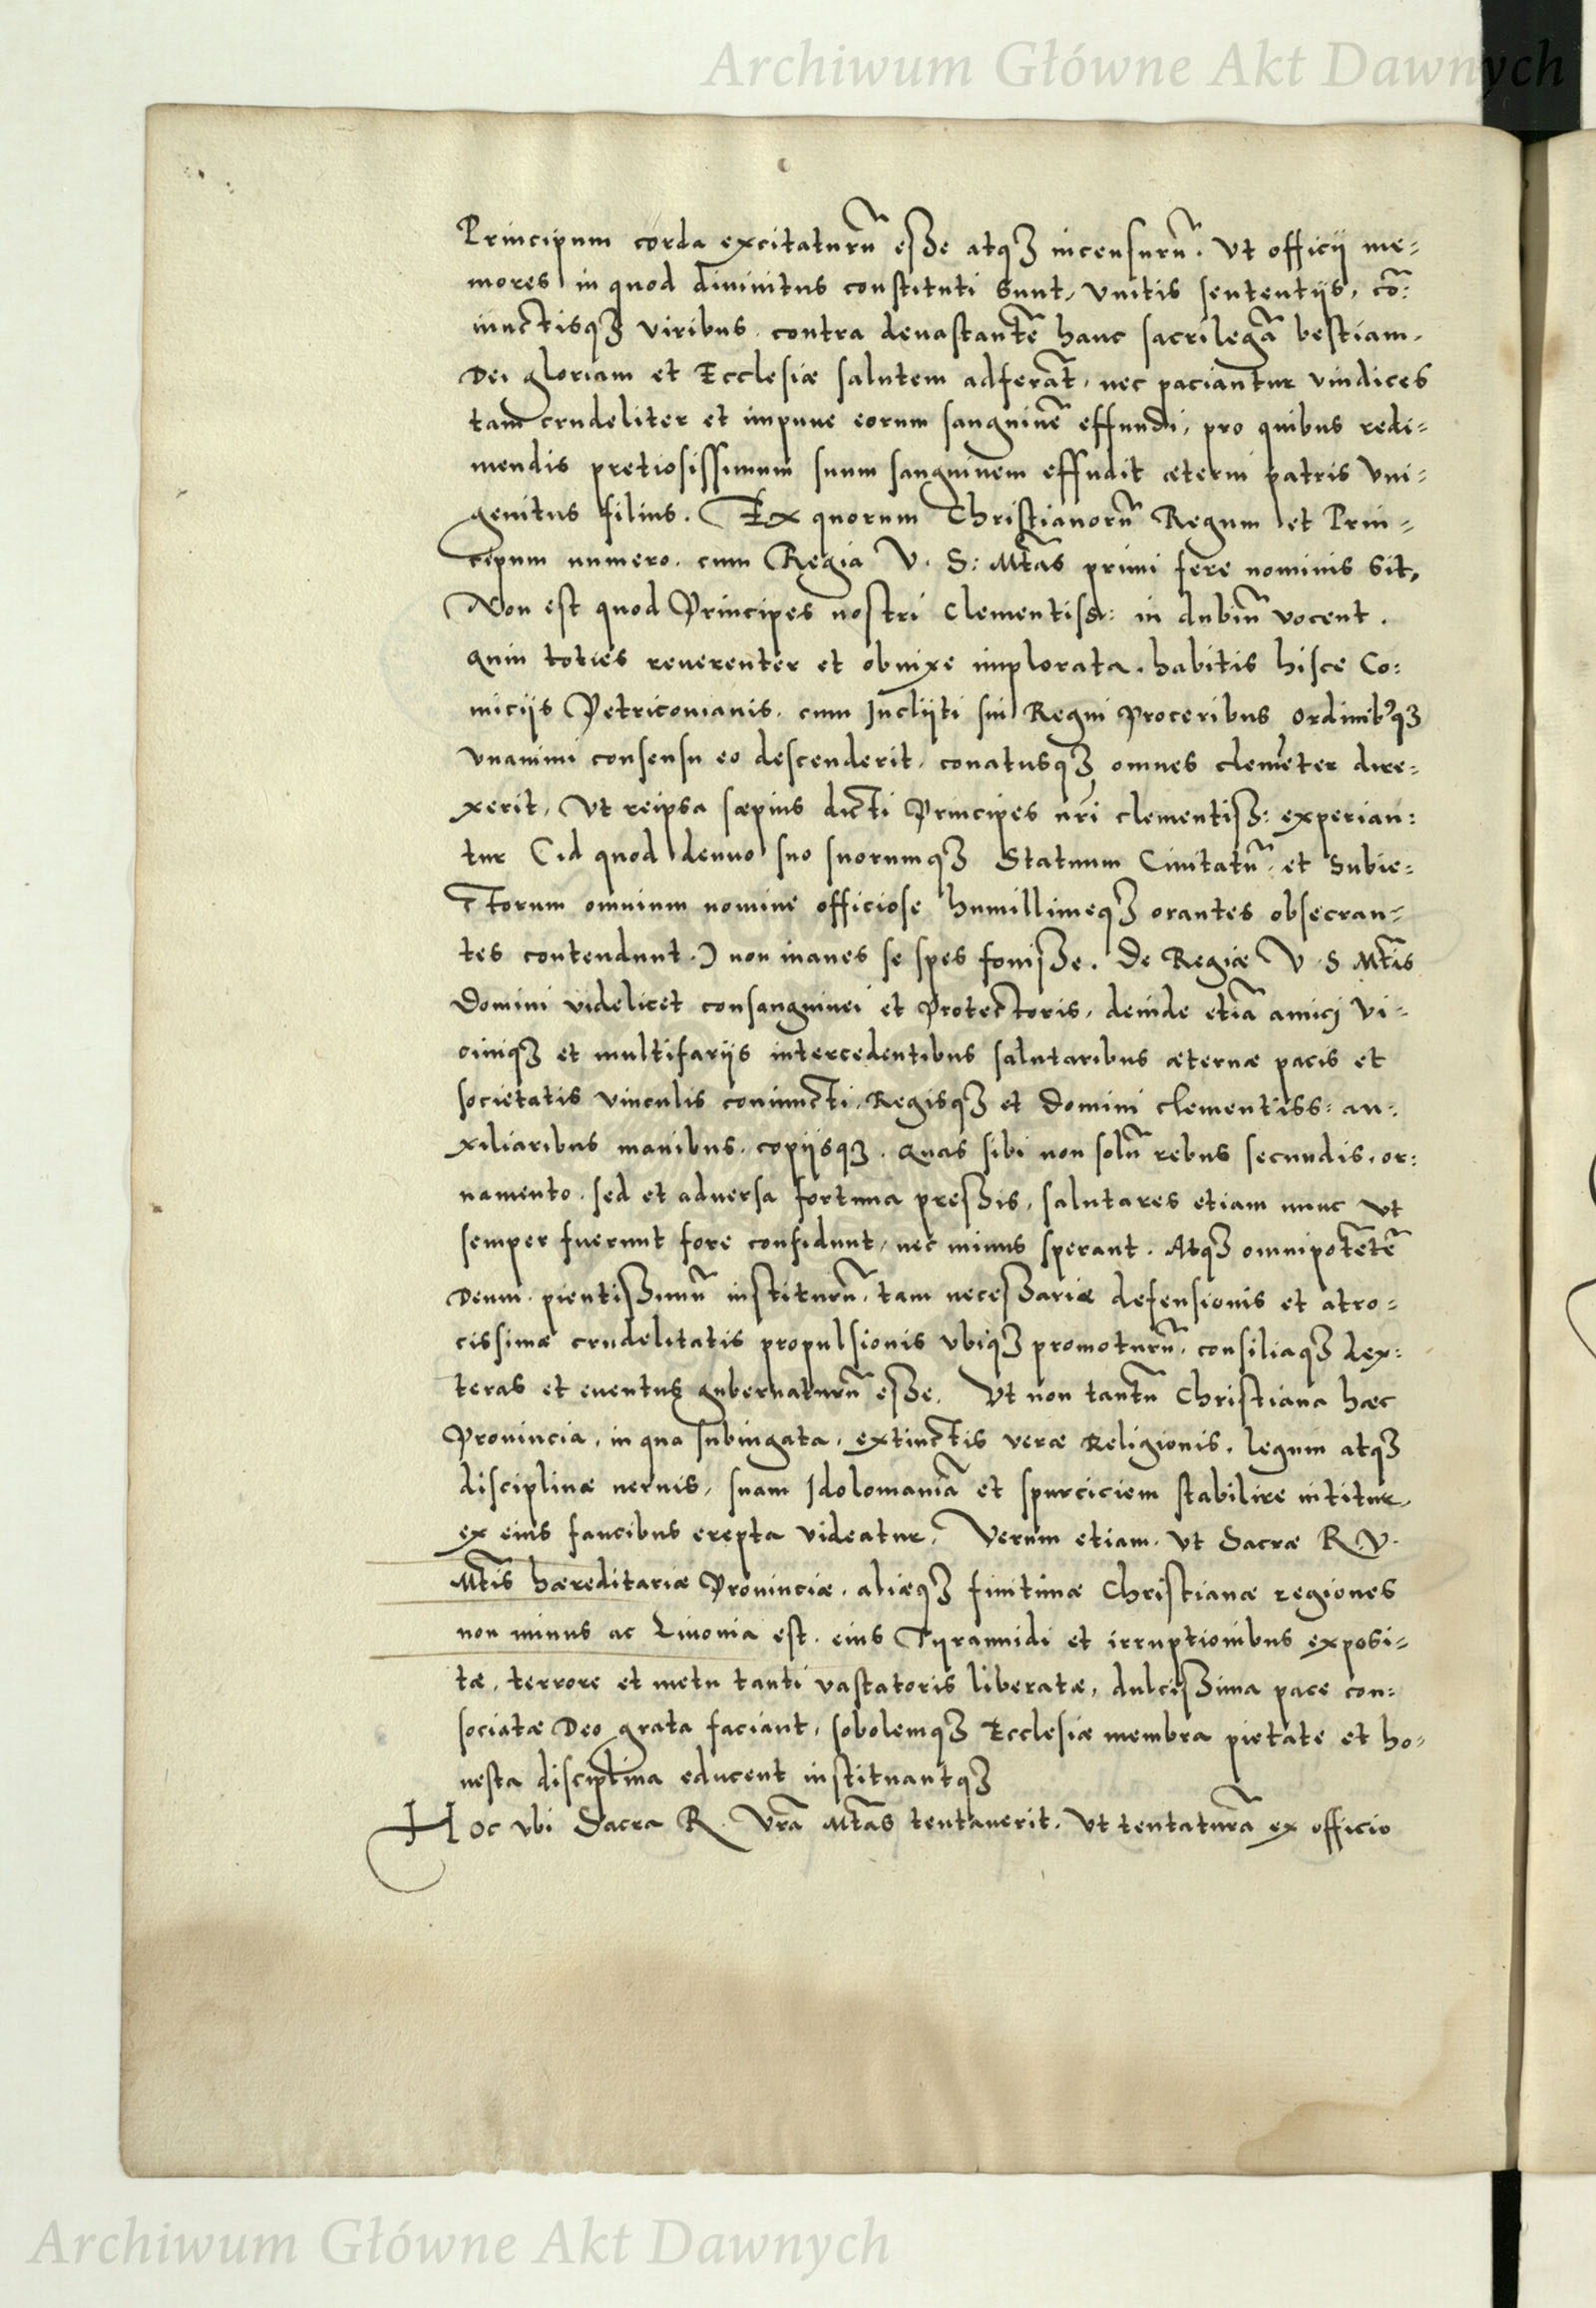 Archiwum Główne Akt Dawnych
Principum corda excitaturū esse atqꝫ incensurū. Ut officij me=
mores in quod divinitus constituti sunt, Unitis sententijs, cō=
iunctisqꝫ viribus, contra deuastantē hanc sacrilegā bestiam,
Dei gloriam et Ecclesiæ salutem adferāt, nec paciantur vindices
tam crudeliter et impune eorum sanguinē effundi, pro quibus redi=
mendis pretiosissimum suum sanguinem effudit æterni patris Uni=
genitus filius. Ex quorum Christianorū Regum et Prin=
cipum numero, cum Regia V. S: Mtas primi fere nominis sit,
Non est quod Principes nostri Clementiss: in dubiū vocent,
quin toties reuerenter et obnixe implorata, habitis hisce Co=
micijs Petriconianis, cum Inclijti sui Regni Proceribus Ordinibꝰqꝫ
vnanimi consensu eo descenderit, conatusqꝫ omnes clemēter dire=
xerit, Ut reipsa sæpius dicti Principes nr̄i clementiss: experian=
tur (id quod denuo suo suorumqꝫ Statuum Ciuitatū et Subie=
ctorum omnium nomine officiose humillimeqꝫ orantes obsecran=
tes contendunt.) non inanes se spes fouisse. De Regiæ V. S Mtis
Domini videlicet consanguinei et Protectoris, deinde etiā amici Vi=
ciniqꝫ et multifarijs intercedentibus salutaribus æternæ pacis et
societatis vinculis coniuncti, Regisqꝫ et Domini clementiss: au=
xiliaribus manibus, copijsqꝫ. Quas sibi non solū rebus secundis, or=
namento, sed et aduersa fortuna pressis, salutares etiam nunc Ut
semper fuerunt fore confidunt, nec minus sperant. Atqꝫ omnipotētē
Deum, pientissimū institutū, tam necessariæ defensionis et atro=
cissimæ crudelitatis propulsionis vbiqꝫ promoturū, consiliaqꝫ dex=
teras et euentus gubernaturū esse. Ut non tantū Christiana hæc
Prouincia, in qua subiugata, extinctis veræ Religionis, legum atqꝫ
disciplinæ neruis, suam Idolomaniā et spurciciem stabilire nititur,
ex eius faucibus erepta videatur, Verum etiam, Ut Sacræ R. V.
Mtis hæreditariæ Prouinciæ, aliæqꝫ finitimæ Christianæ regiones
non minus ac Liuonia est, eius Tyrannidi et irruptionibus exposi=
tæ, terrore et metu tanti vastatoris liberatæ, dulcissima pace con=
sociatæ Deo grata faciant, sobolemqꝫ Ecclesiæ membra pietate et ho=
nesta disciplina educent instituantqꝫ
Hoc vbi Sacra R. Vrā Mtas tentauerit, Ut tentaturā ex officio
Archiwum Główne Akt Dawnych